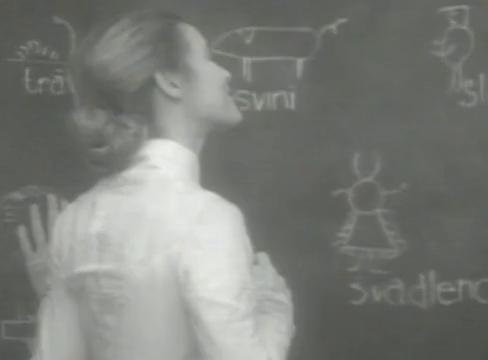 trá
svini
sl
svadlenc